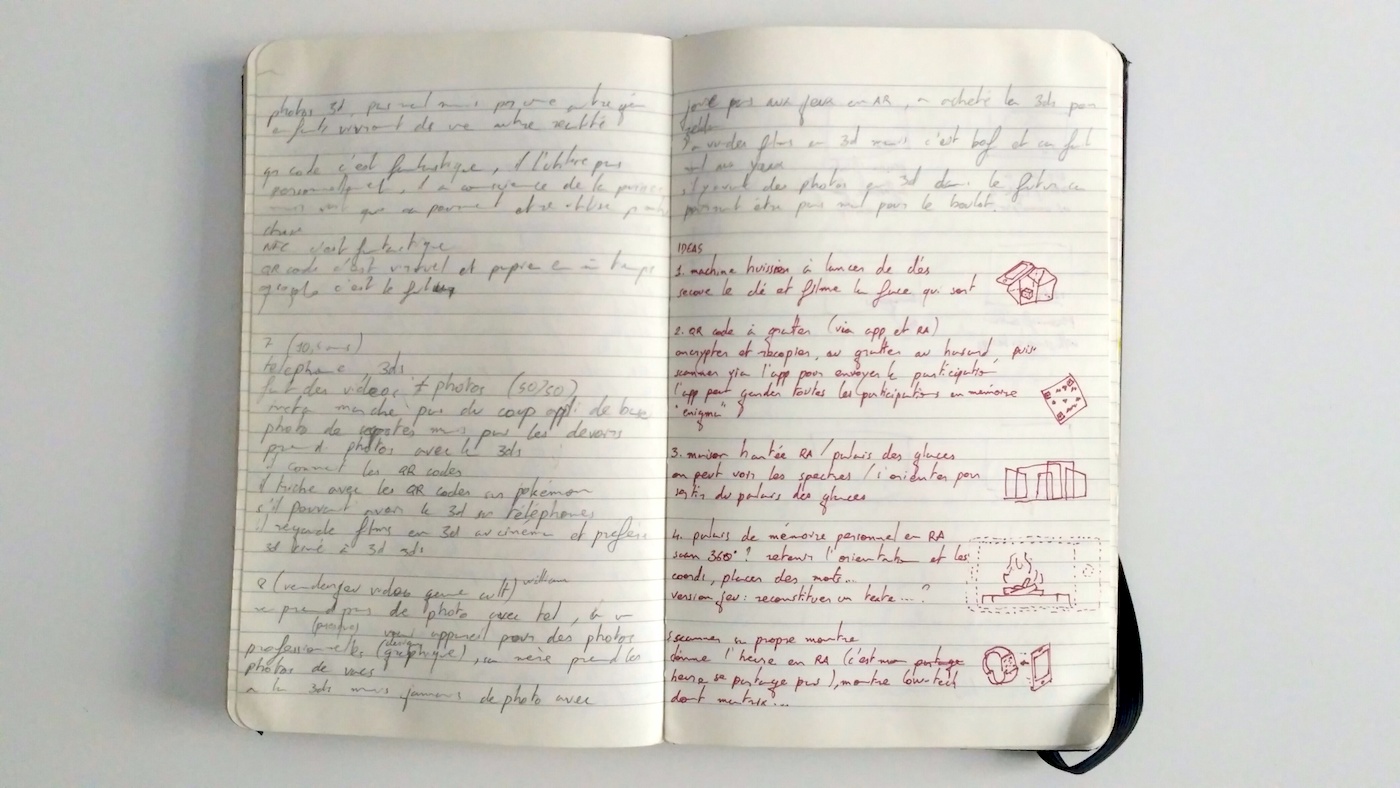 photos 3d, pas mal mais pour une autre gén
enfants vivront ds une autre réalité
qr code c'est fantastique, il l'utilise pas
personnellement, il a conscience de la
que ça pourrait etre utilisé
chose
NFC c'est fantastique
QR code c'est virtuel et papier en m temps
c'est le futur
7 (10,5 ans)
téléphone, 3ds
fait des vidéos + photos (50/50)
marche pas du coup appli de base
photo de mais pas les devoirs
prend photos avec la 3ds
connait les QR codes
il triche avec les QR codes sur pokémon
s'il pouvait avoir la 3d sur téléphones
il regarde films en 3d au cinéma et préfère
3d ciné à 3d 3ds
8 (vendeur video game cult) william
prend pas de photo avec tel, a un
(propos) vrai appareil pour des photos
professionnelles (design graphique), sa mère prend les
photos de vacs
a la 3ds mais jamais de photo avec
joue pas aux jeux en AR, a acheté la 3ds pour
zelda
a vu des films en 3d mais c'est bof et ça fait
mal aux yeux
s'il y avait des photos en 3d dans le futur ça
pourrait être pas mal pour le boulot.
IDEAS
1. machine à lancer de dés
secoue le dé et filme la face qui sort
2. QR code à gratter (via app et RA)
encrypter et recopier, ou gratter au hasard, puis
scanner via l'app pour envoyer la participation
l'app peut garder toutes les participations en mémoire
"enigma" ?
3. maison hantée RA / palais des glaces
on peut voir les spectres / s'orienter pour
sortir du palais des glaces
4. palais de mémoire personnel en RA
scan 360° ? retenir l'orientation et les
coords, placer des mots...
version jeu : reconstituer un texte ... ?
5 scanner sa propre montre
donne l'heure en RA (c'est mon partage
heure se partage pas), montre low-tech
dont